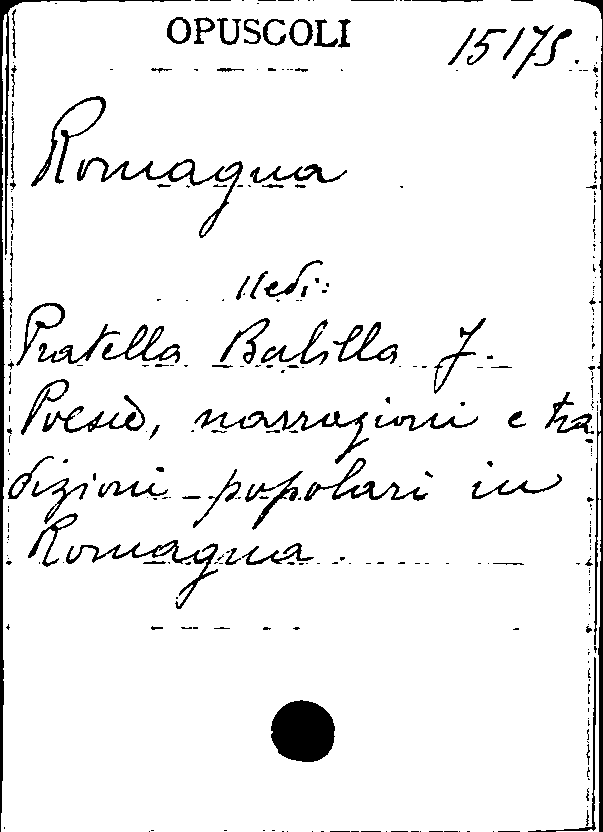 OPUSCOLI
15175.
Romagna
Vedi:
Pratella Balilla J.
Poesie, narrazioni e tra
dizioni popolari in
Romagna.